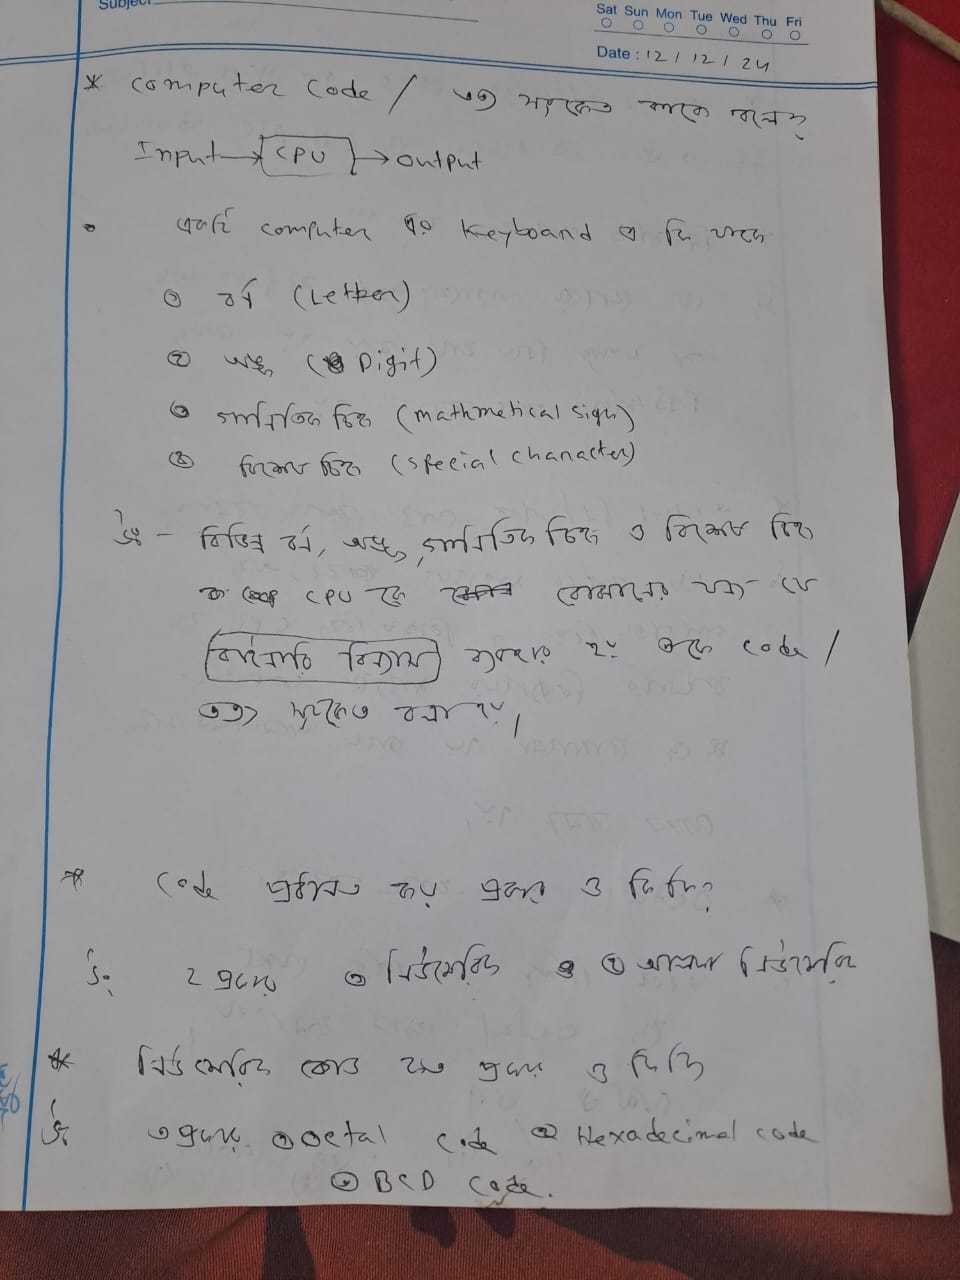 Subject
Sat Sun Mon Tue Wed Thu Fri
Date : 12 / 12 / 24
* Computer Code / তথ্য সংকেত কাকে বলে?
Input → CPU → output
• একটি computer এর Keyboard এ কি থাকে
① বর্ণ (Letter)
② অঙ্ক (Digit)
③ গাণিতিক চিহ্ন (mathmetical sign)
④ বিশেষ চিহ্ন (special character)
উঃ - বিভিন্ন বর্ণ, অঙ্ক, গাণিতিক চিহ্ন ও বিশেষ চিহ্ন
CPU কে বোঝানোর জন্য যে
বাইনারি বিন্যাস ব্যবহার হয় তাকে code /
তথ্য সংকেত বলা হয়।
* Code প্রধানত কয় প্রকার ও কি কি?
উঃ ২ প্রকার ① নিউমেরিক ② আলফা নিউমেরিক
* নিউমেরিক কোড কত প্রকার ও কি কি
উঃ ৩ প্রকার ① octal code ② Hexadecimal code
③ BCD Code.